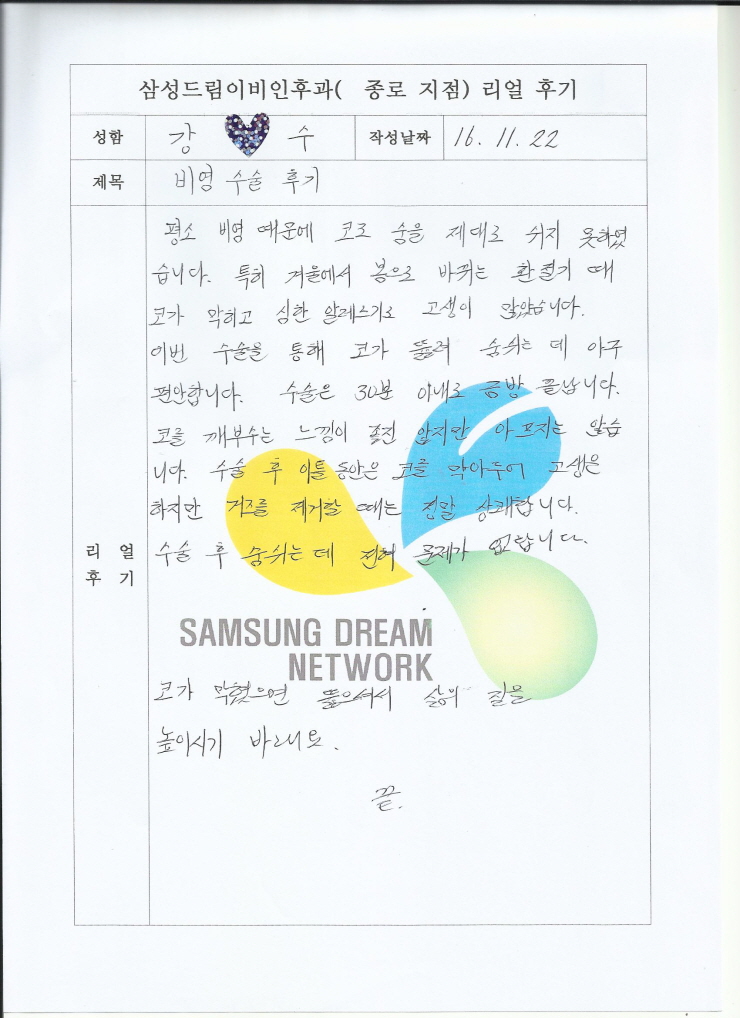 삼성드림이비인후과( 종로 지점) 리얼 후기
성함 강 수 작성날짜 16. 11. 22
제목 비염 수술 후기
평소 비염 때문에 코로 숨을 제대로 쉬지 못하였
습니다. 특히 겨울에서 봄으로 바뀌는 환절기 때
코가 막히고 심한 알레르기로 고생이 많았습니다.
이번 수술을 통해 코가 뚫려 숨쉬는 데 아주
편안합니다. 수술은 30분 이내로 금방 끝납니다.
코를 깨부수는 느낌이 좋진 않지만 아프지는 않습
니다. 수술 후 이틀 동안은 코를 막아두어 고생은
하지만 거즈를 제거할 때는 정말 상쾌합니다.
리 얼 후 기
수술 후 숨쉬는 데 전혀 문제가 없답니다.
SAMSUNG DREAM
NETWORK
코가 막혔으면 뚫으셔서 삶의 질을
높이시기 바래요.
끝.